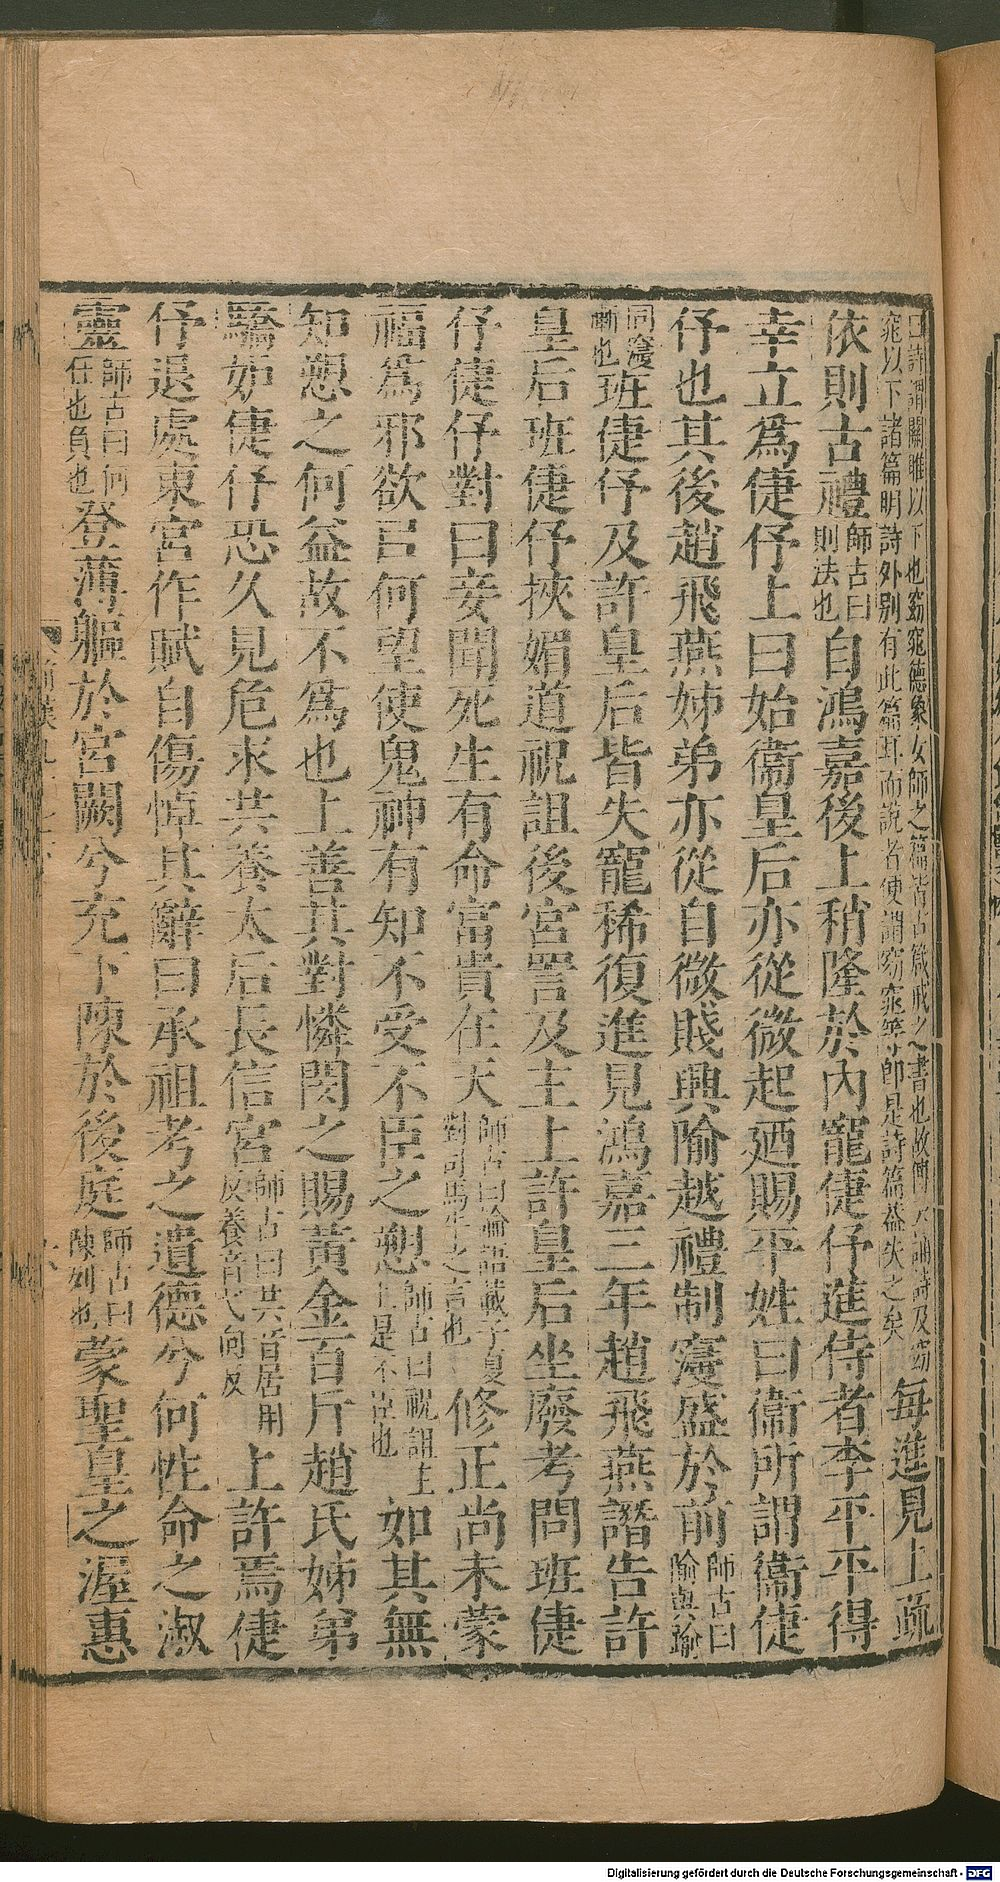 曰詩謂關雎以下也窈窕德象女師之篇皆古箴戒之書也故傳云誦詩及窈
窕以下諸篇明詩外別有此篇耳而說者便謂窈窕等即是詩篇蓋失之矣
每進見上疏
依則古禮師古曰則法也自鴻嘉後上稍隆於內寵倢伃進侍者李平平得
幸立爲倢伃上曰始衞皇后亦從微起廼賜平姓曰衞所謂衞倢
伃也其後趙飛燕姊弟亦從自微賤興隃越禮制寖盛於前師古曰隃與踰
同寖漸也班倢伃及許皇后皆失寵稀復進見鴻嘉三年趙飛燕譖告許
皇后班倢伃挾媚道祝詛後宮詈及主上許皇后坐廢考問班倢
伃倢伃對曰妾聞死生有命富貴在天師古曰論語載子夏對司馬牛之言也修正尚未蒙
福爲邪欲㠯何望使鬼神有知不受不臣之愬師古曰祝詛主上是不臣也如其無
知愬之何益故不爲也上善其對憐閔之賜黃金百斤趙氏姊弟
驕妒倢伃恐久見危求共養太后長信宮師古曰共音居用反養音弋向反上許焉倢
伃退處東宮作賦自傷悼其辭曰承祖考之遺德兮何性命之淑
靈師古曰何任也負也登薄軀於宮闕兮充下陳於後庭師古曰陳列也蒙聖皇之渥惠
Digitalisierung gefördert durch die Deutsche Forschungsgemeinschaft - DFG